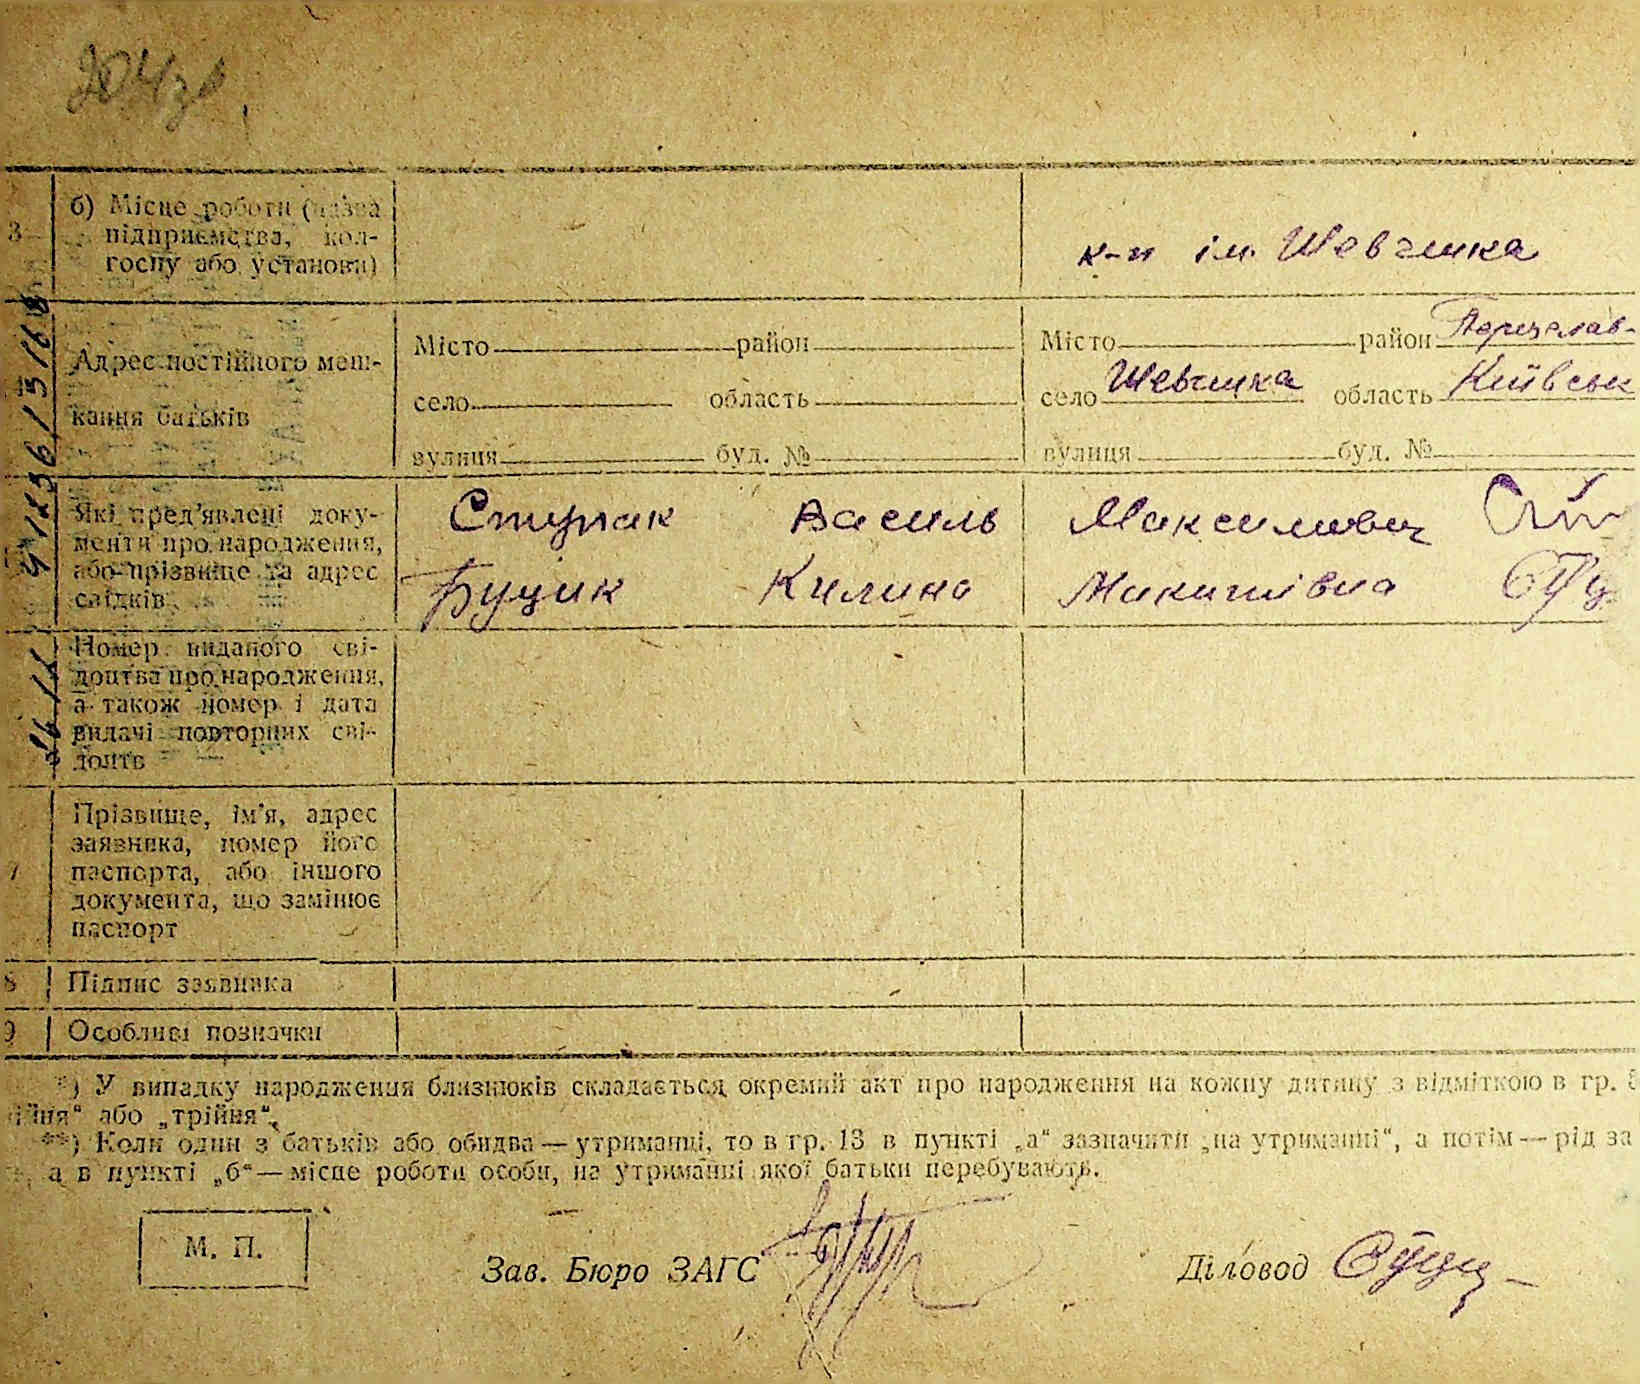 204зв
3
б) Місце роботи (назва
підприємства, кол-
госпу або установи)
к-п ім. Шевченка
Адрес постійного меш-
кання батьків
Місто район
село область
вулиця буд. №
Місто район Переяслав-
село Шевченка область Київськ
вулиця буд. №
Які пред'явлені доку-
менти про народження,
або прізвище та адрес
свідків
Ступак Василь Максимович
Буцик Килина Микитівна
Номер виданого сві-
доцтва про народження,
а також номер і дата
видачі повторних сві-
доцтв
7
Прізвище, ім'я, адрес
заявника, номер його
паспорта, або іншого
документа, що замінює
паспорт
8 Підпис заявника
9 Особливі позначки
*) У випадку народження близнюків складається окремий акт про народження на кожну дитину з відміткою в гр. 5
ійня" або „трійня".
**) Коли один з батьків або обидва — утриманці, то в гр. 13 в пункті „а" зазначити „на утриманні", а потім — рід за
а в пункті „б" — місце роботи особи, на утриманні якої батьки перебувають.
М. П.
Зав. Бюро ЗАГС
Діловод